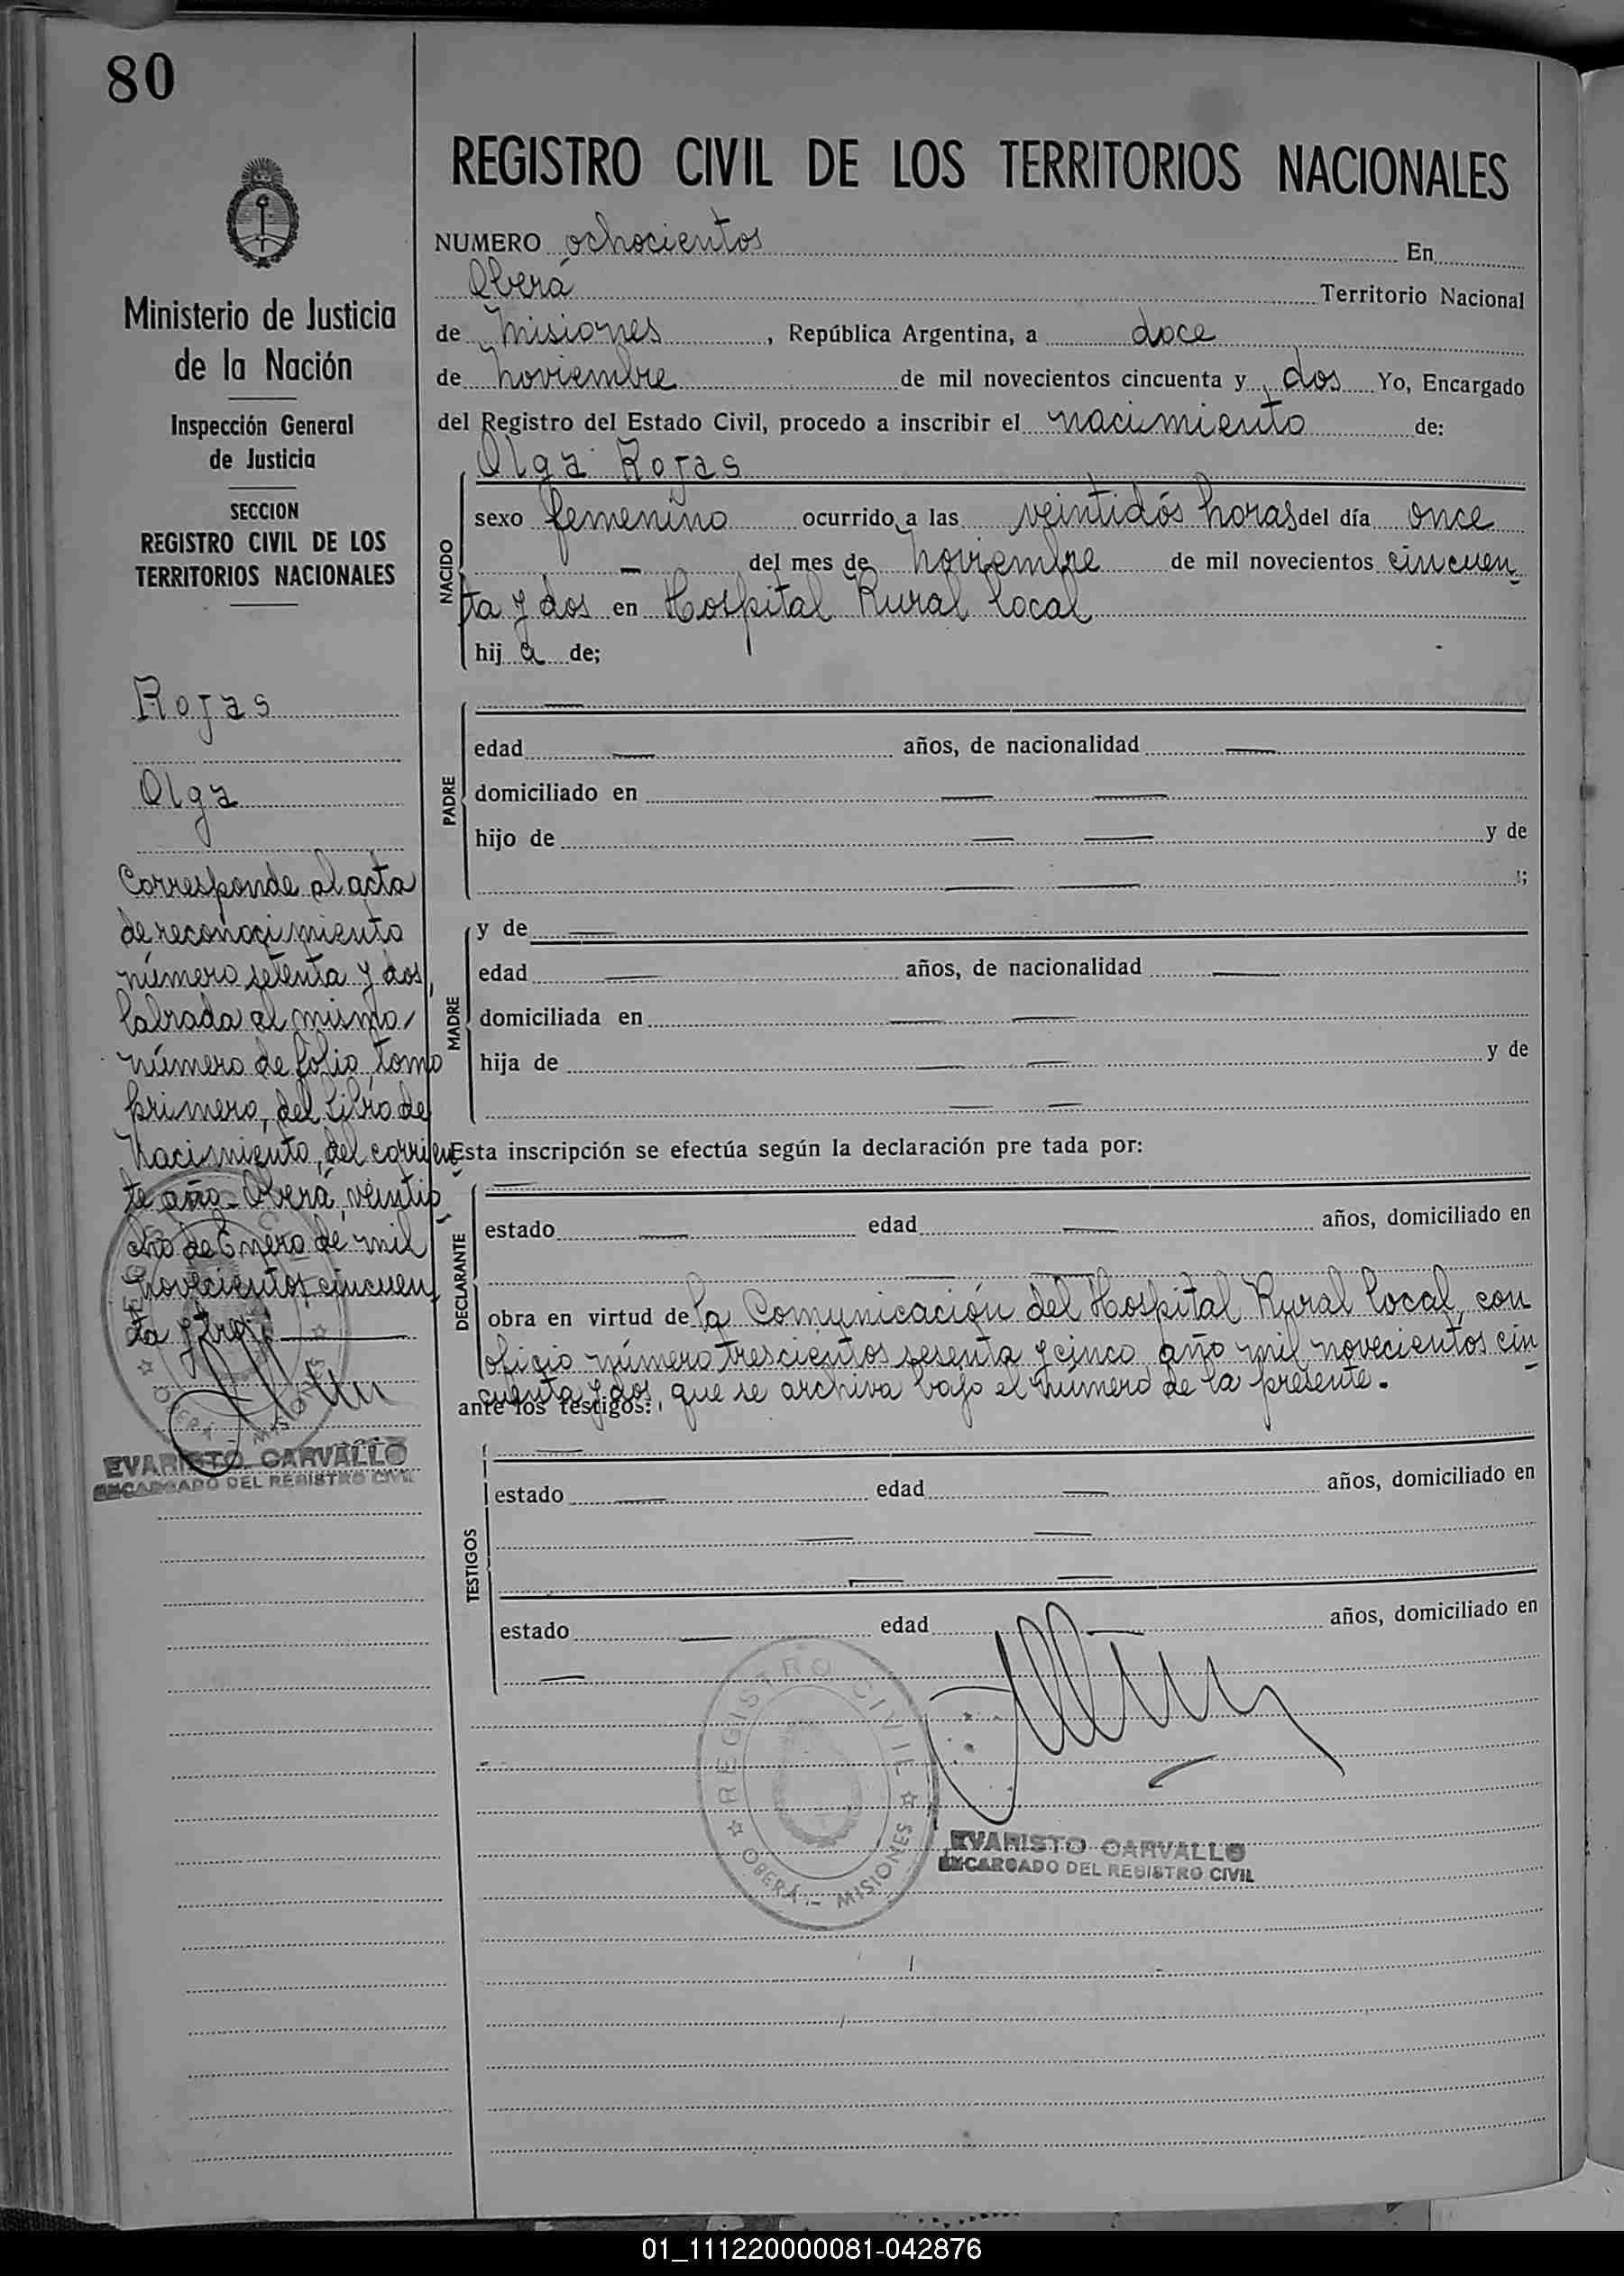 80
Ministerio de Justicia
de la Nación
Inspección General
de Justicia
SECCION
REGISTRO CIVIL DE LOS
TERRITORIOS NACIONALES
Rojas
Olga
Corresponde al acta
de reconocimiento
número setenta y dos,
labrada al mismo
número de folio, tomo
primero, del libro de
Nacimiento, del corrien
te año.- Oberá, veintio
cho de Enero de mil
novecientos cincuen
ta y tres
EVARISTO CARVALLO
ENCARGADO DEL REGISTRO CIVIL
REGISTRO CIVIL DE LOS TERRITORIOS NACIONALES
NUMERO ochocientos En
Oberá Territorio Nacional
de Misiones, República Argentina, a doce
de Noviembre de mil novecientos cincuenta y dos Yo, Encargado
del Registro del Estado Civil, procedo a inscribir el nacimiento de:
Olga Rojas
NACIDO
sexo femenino ocurrido a las veintidós horas del día once
— del mes de Noviembre de mil novecientos cincuen
ta y dos en Hospital Rural local
hij a de;
PADRE
—
edad — años, de nacionalidad —
domiciliado en — —
hijo de — — y de
— — ;
MADRE
y de —
edad — años, de nacionalidad —
domiciliada en — —
hija de — — y de
— —
Esta inscripción se efectúa según la declaración pre tada por:
DECLARANTE
—
estado — edad — años, domiciliado en
— —
obra en virtud de la Comunicación del Hospital Rural local, con
oficio número trescientos sesenta y cinco, año mil novecientos cin
cuenta y dos, que se archiva bajo el número de la presente.-
ante los testigos:
TESTIGOS
—
estado — edad — años, domiciliado en
— —
— —
estado — edad — años, domiciliado en
—
REGISTRO CIVIL
OBERÁ - MISIONES
EVARISTO CARVALLO
ENCARGADO DEL REGISTRO CIVIL
01_111220000081-042876